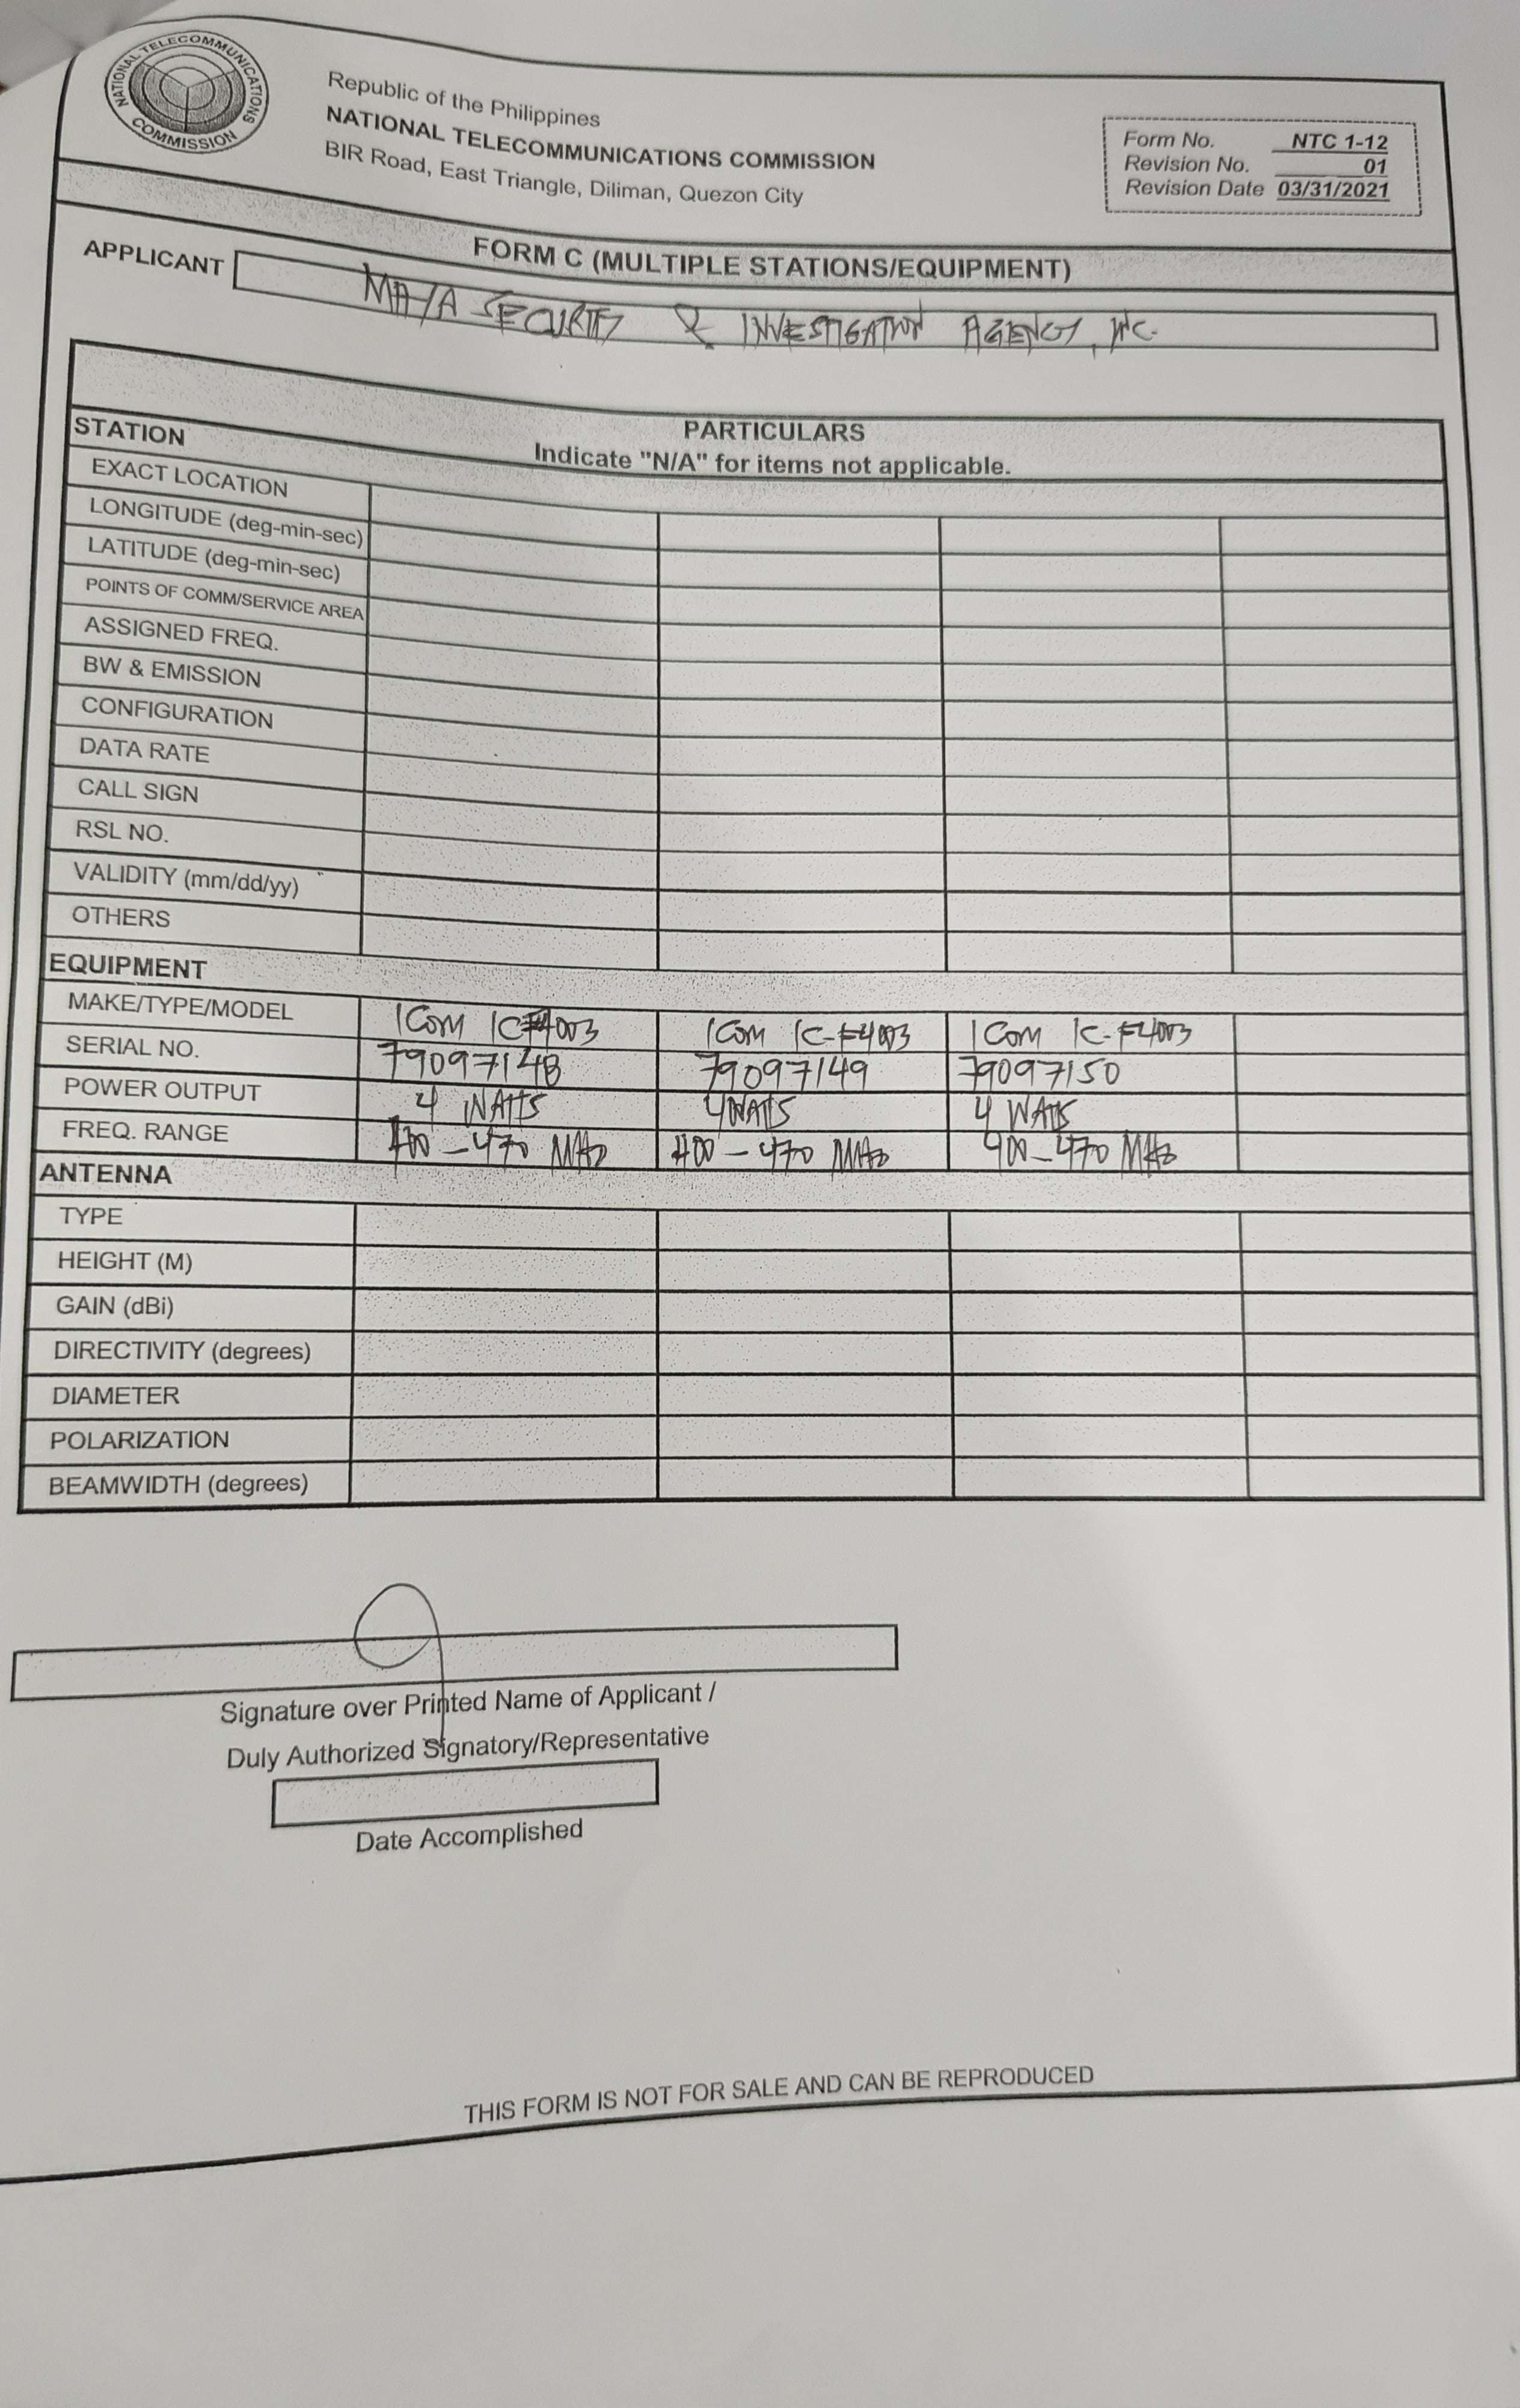 NATIONAL TELECOMMUNICATIONS COMMISSION
Republic of the Philippines
NATIONAL TELECOMMUNICATIONS COMMISSION
BIR Road, East Triangle, Diliman, Quezon City
Form No. NTC 1-12
Revision No. 01
Revision Date 03/31/2021
FORM C (MULTIPLE STATIONS/EQUIPMENT)
APPLICANT SECURITY & INVESTIGATION AGENCY, INC.
PARTICULARS
Indicate "N/A" for items not applicable.
STATION
EXACT LOCATION
LONGITUDE (deg-min-sec)
LATITUDE (deg-min-sec)
POINTS OF COMM/SERVICE AREA
ASSIGNED FREQ.
BW & EMISSION
CONFIGURATION
DATA RATE
CALL SIGN
RSL NO.
VALIDITY (mm/dd/yy)
OTHERS
EQUIPMENT
MAKE/TYPE/MODEL ICOM IC-F4003 ICOM IC-F4003 ICOM IC-F4003
SERIAL NO. 79097148 79097149 79097150
POWER OUTPUT 4 WATTS 4 WATTS 4 WATTS
FREQ. RANGE 400-470 MHz 400-470 MHz 400-470 MHz
ANTENNA
TYPE
HEIGHT (M)
GAIN (dBi)
DIRECTIVITY (degrees)
DIAMETER
POLARIZATION
BEAMWIDTH (degrees)
Signature over Printed Name of Applicant /
Duly Authorized Signatory/Representative
Date Accomplished
THIS FORM IS NOT FOR SALE AND CAN BE REPRODUCED